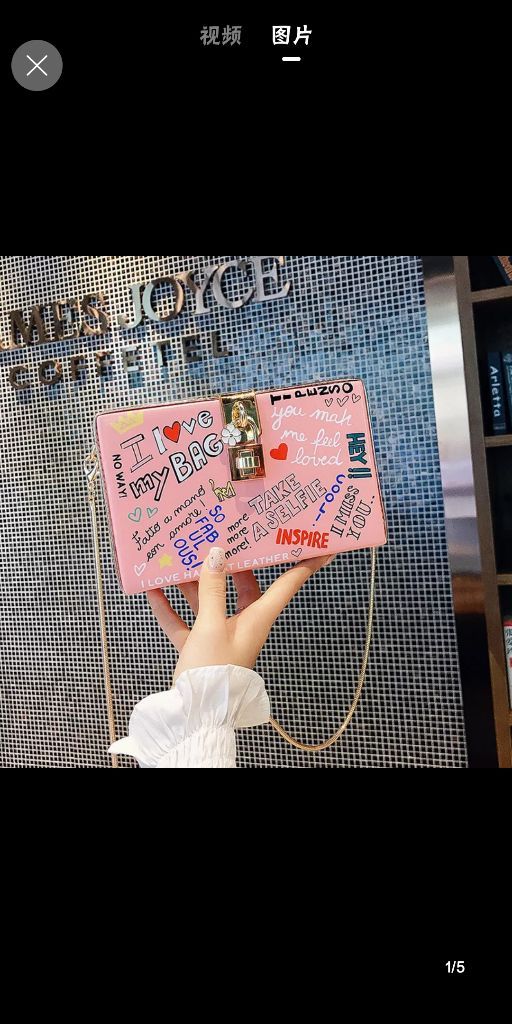 视频 图片
MES JOYCE
COFFETEL
Arletta
I love
my BAG
NO WAY!
Fatto a mano
con amore!
SO
FAB
UL
OUS!
more
more
more!
TAKE
A SELFIE
you mak
me feel
loved
HEY!!
COOL..!
I MISS
YOU..
INSPIRE
I LOVE
LEATHER
1/5